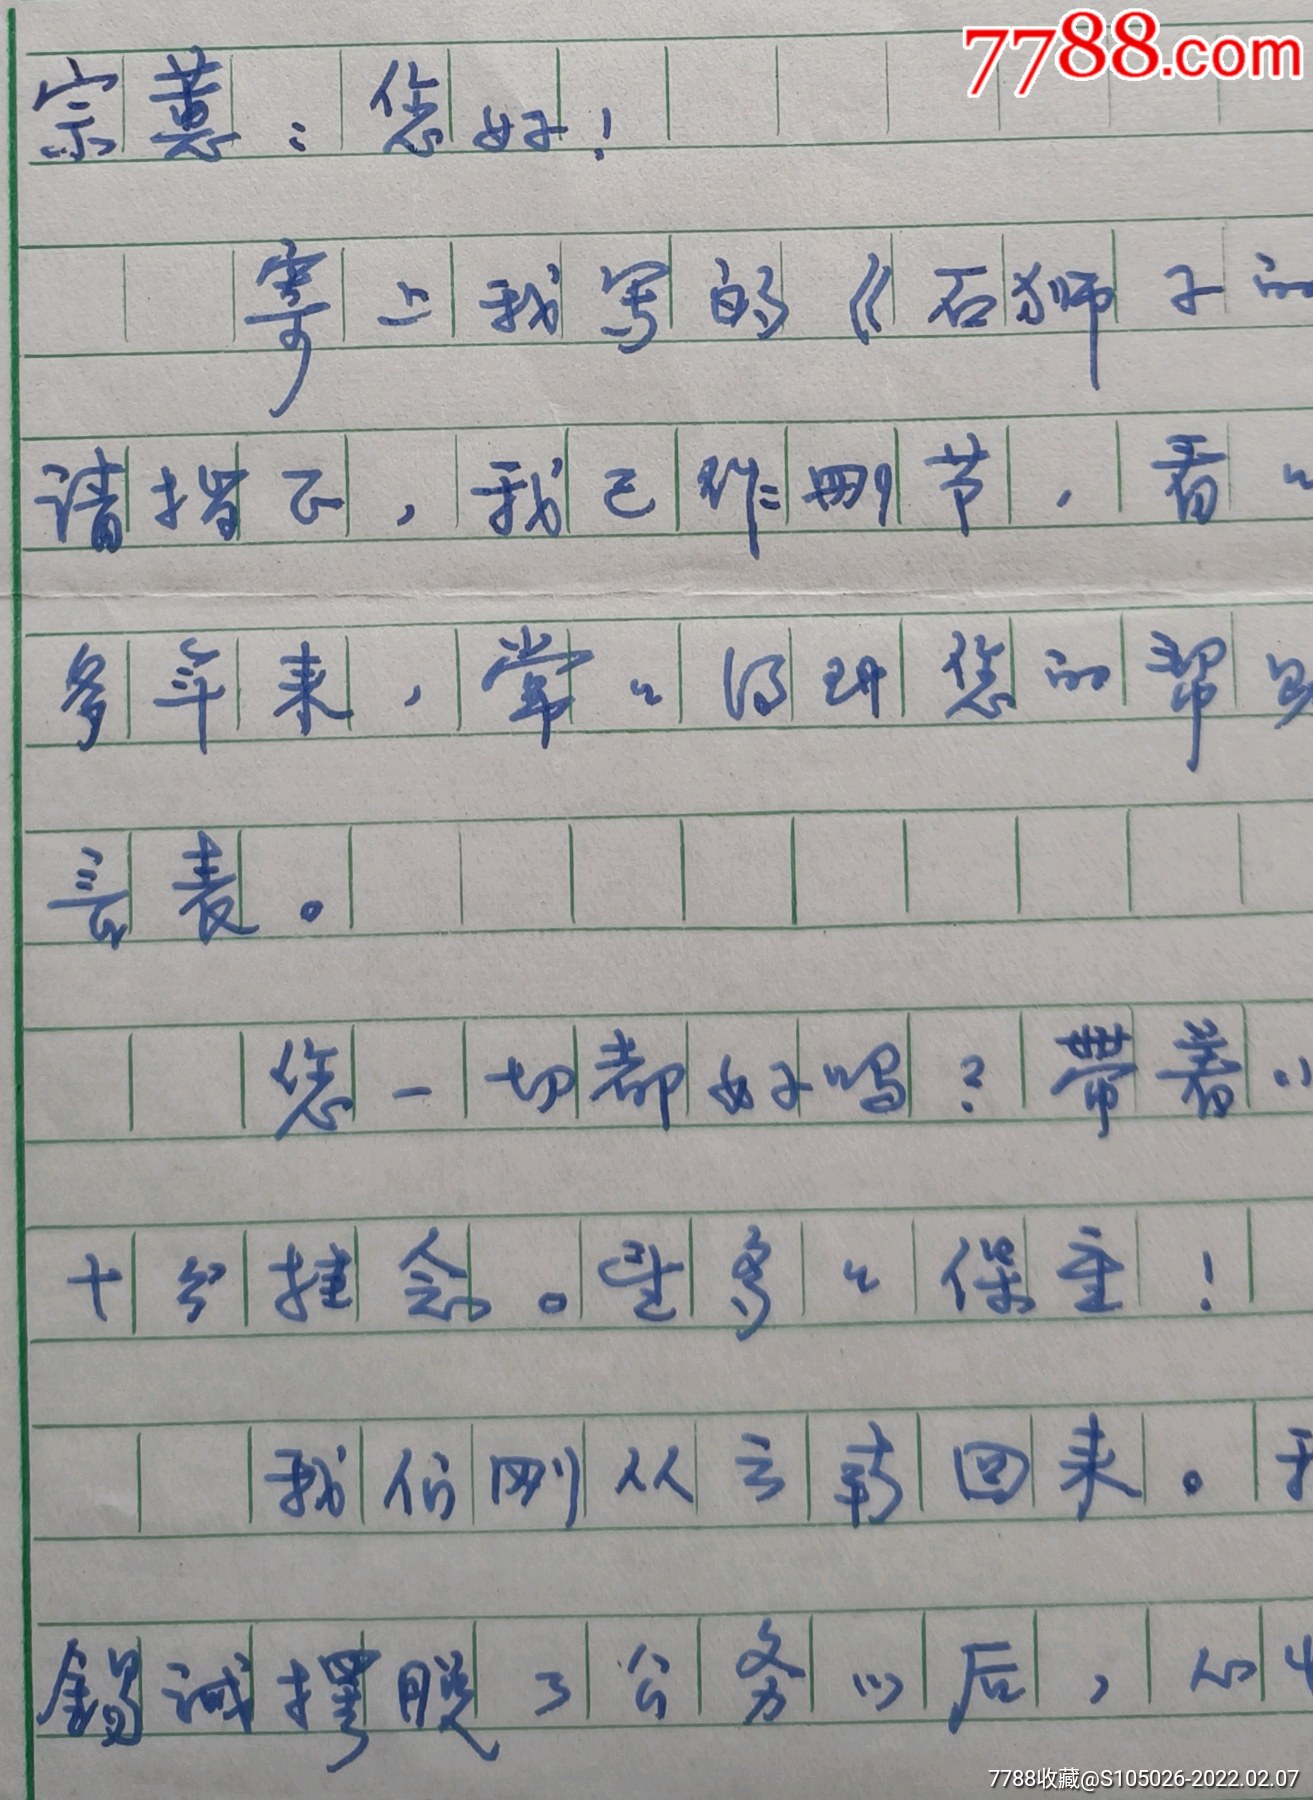 7788.com
宗蕙：您好！
寄上我写的《石狮子的
请指正，我已作删节，看
多年来，常々得到您的帮助
言表。
您一切都好吗？带着小
十分挂念。望多々保重！
我们刚从云南回来。我
锡诚摆脱了公务以后，心
7788收藏@S105026-2022.02.07